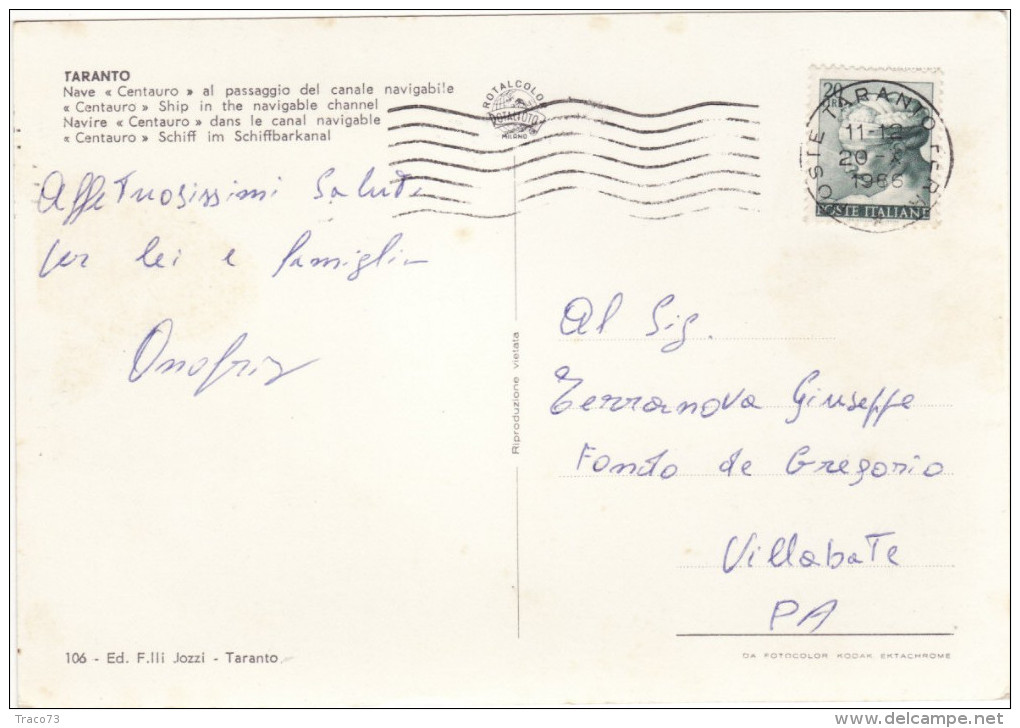 TARANTO
Nave « Centauro » al passaggio del canale navigabile
« Centauro » Ship in the navigable channel
Navire « Centauro » dans le canal navigable
« Centauro » Schiff im Schiffbarkanal
Affettuosissimi Saluti
per lei e famiglia
ROTALCOLOR
ROTALFOTO
MILANO
20
LIRE
POSTE ITALIANE
POSTE TARANTO FERR
11-12
20
1966
Riproduzione vietata
Al Sig.
Terranova Giuseppe
Fondo de Gregorio
Villabate
PA
106 - Ed. F.lli Jozzi - Taranto
DA FOTOCOLOR KODAK EKTACHROME
Traco73
delcampe.net